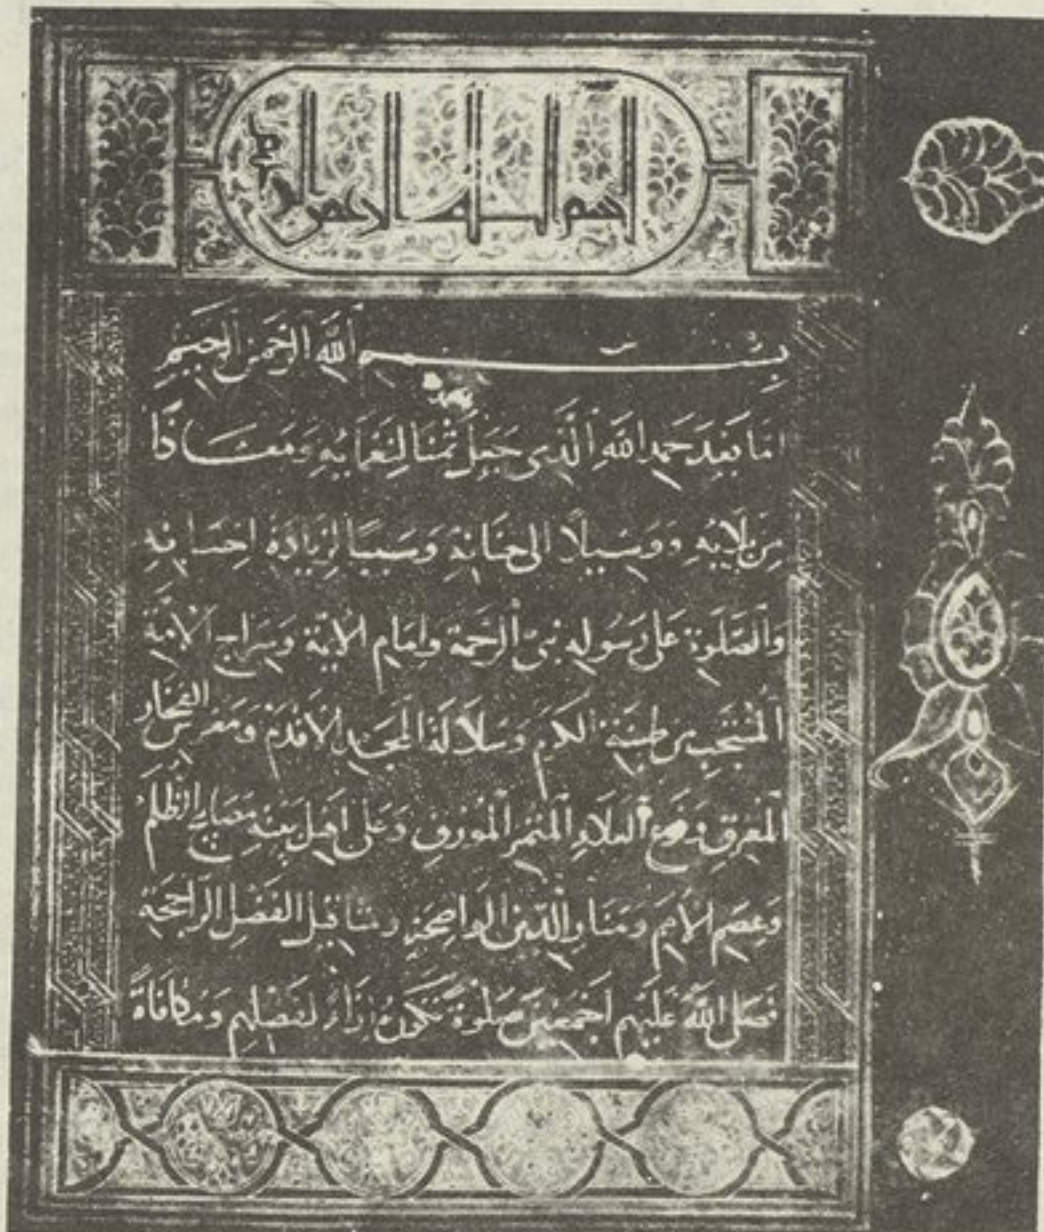 بسم الله الرحمن الرحيم
بسم الله الرحمن الرحيم
اما بعد حمد الله الذى جعل ثمنا لنعمائه ومعاذا
من بلائه ووسيلا الى جنانه وسببا لزيادة احسانه
والصلوة على رسوله نبى الرحمة وامام الائمة وسراج الامة
المنتجب من طينة الكرم وسلالة المجد الاقدم ومغرس الفخار
المعرق وفرع العلاء المثمر المورق وعلى اهل بيته مصابيح الظلم
وعصم الامم ومنار الدين الواضحة ومثاقيل الفضل الراجحة
فصلى الله عليهم اجمعين صلوة تكون ازاء لفضلهم ومكافاة